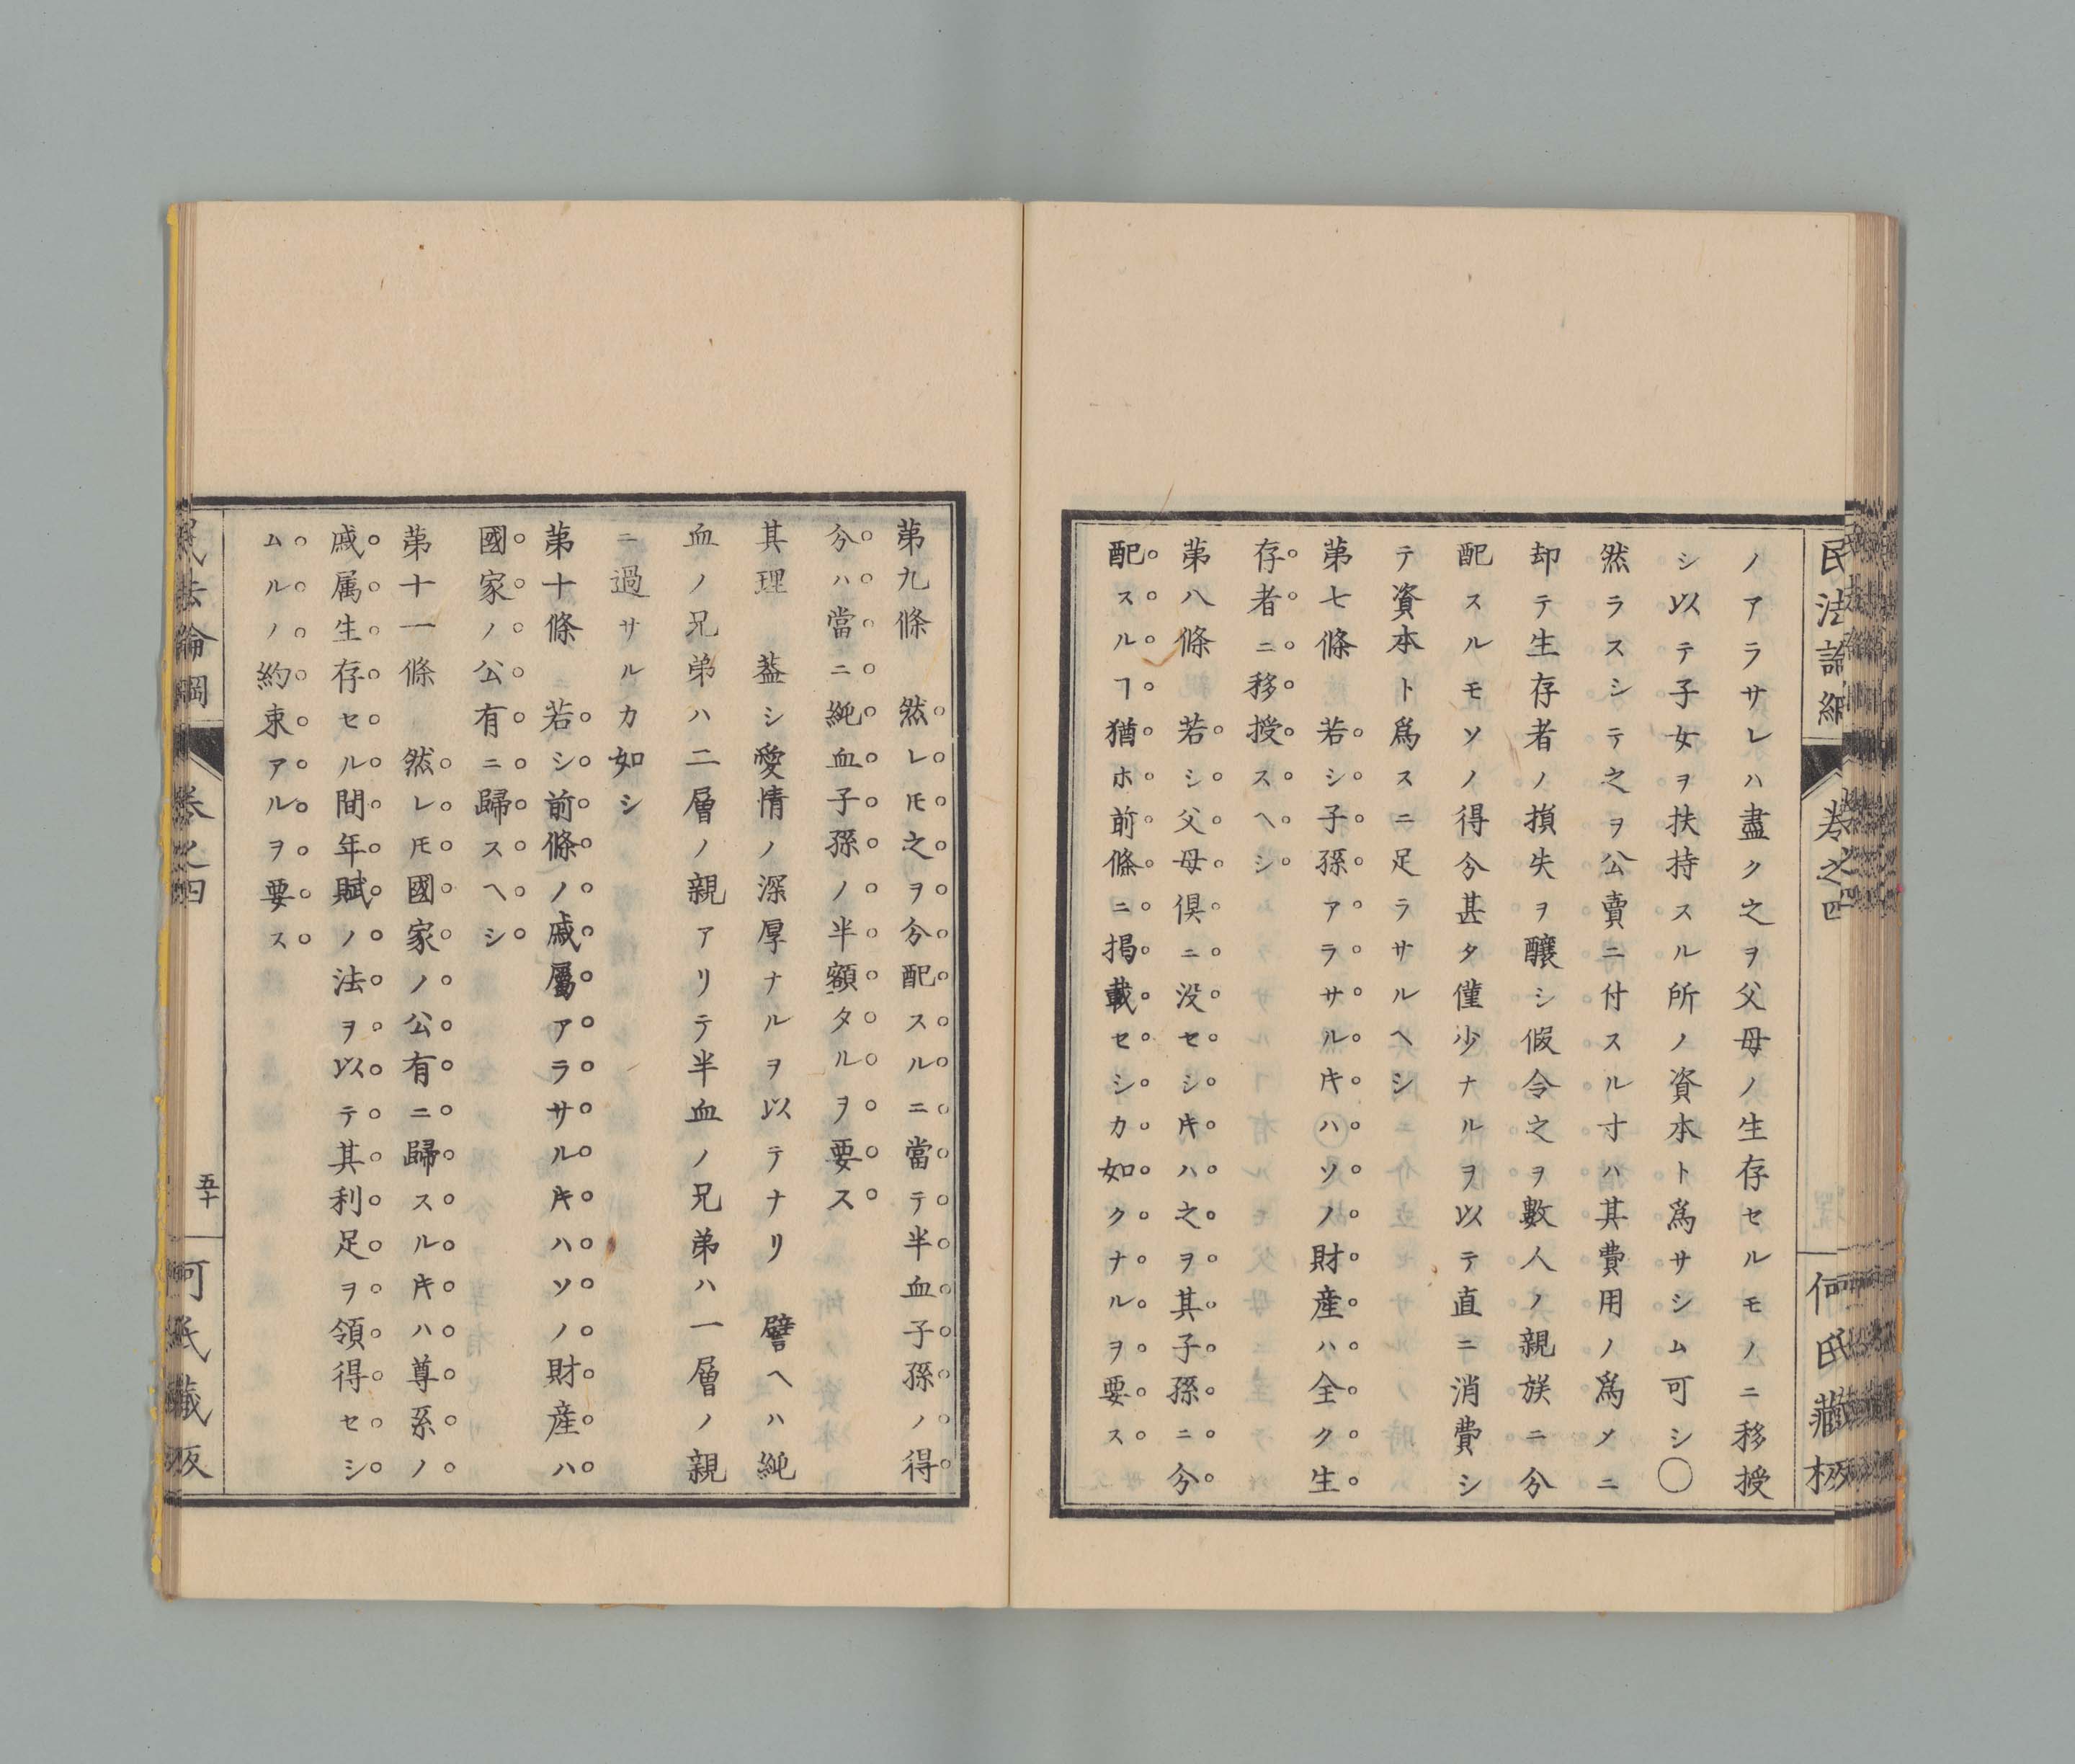 民法論綱
卷之四
何氏藏板
ノアラサレハ盡ク之ヲ父母ノ生存セルモノニ移授
シ以テ子女ヲ扶持スル所ノ資本ト爲サシム可シ〇
然ラスシテ之ヲ公賣ニ付スル寸ハ其費用ノ爲メニ
却テ生存者ノ損失ヲ釀シ假令之ヲ數人ノ親族ニ分
配スルモソノ得分甚タ僅少ナルヲ以テ直ニ消費シ
テ資本ト爲スニ足ラサルヘシ
第七條　若シ子孫アラサルキハソノ財産ハ全ク生
存者ニ移授スヘシ
第八條　若シ父母倶ニ没セシキハ之ヲ其子孫ニ分
配スルヿ猶ホ前條ニ掲載セシカ如クナルヲ要ス
第九條　然レ𪜈之ヲ分配スルニ當テ半血子孫ノ得
分ハ當ニ純血子孫ノ半額タルヲ要ス
其理　葢シ愛情ノ深厚ナルヲ以テナリ　譬ヘハ純
血ノ兄弟ハ二層ノ親アリテ半血ノ兄弟ハ一層ノ親
ニ過サルカ如シ
第十條　若シ前條ノ戚屬アラサルキハソノ財産ハ
國家ノ公有ニ歸スヘシ
第十一條　然レ𪜈國家ノ公有ニ歸スルキハ尊系ノ
戚属生存セル間年賦ノ法ヲ以テ其利足ヲ領得セシ
ムルノ約束アルヲ要ス
民法論綱
卷之四
五十
何氏藏板